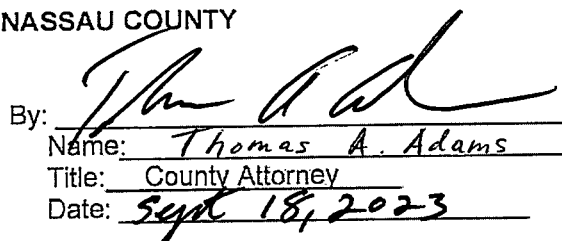 NASSAU COUNTY
By:
Name: Thomas A. Adams
Title: County Attorney
Date: Sept 18, 2023